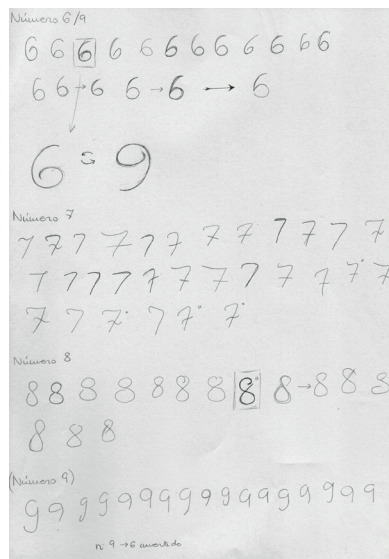 Número 6/9
6 6 6 6 6 6 6 6 6 6 6 6 6
6 6 → 6 6 → 6 → 6
6 = 9
Número 7
7 7 7 7 7 7 7 7 7 7 7 7
7 7 7 7 7 7 7 7 7 7 7 7
7 7 7 7 7 7
Número 8
8 8 8 8 8 8 8 8 8 → 8 8 8
8 8 8
(Número 9)
9 9 9 9 9 9 9 9 9 9 9 9 9 9 9 9 9
nº 9 → 6 invertido